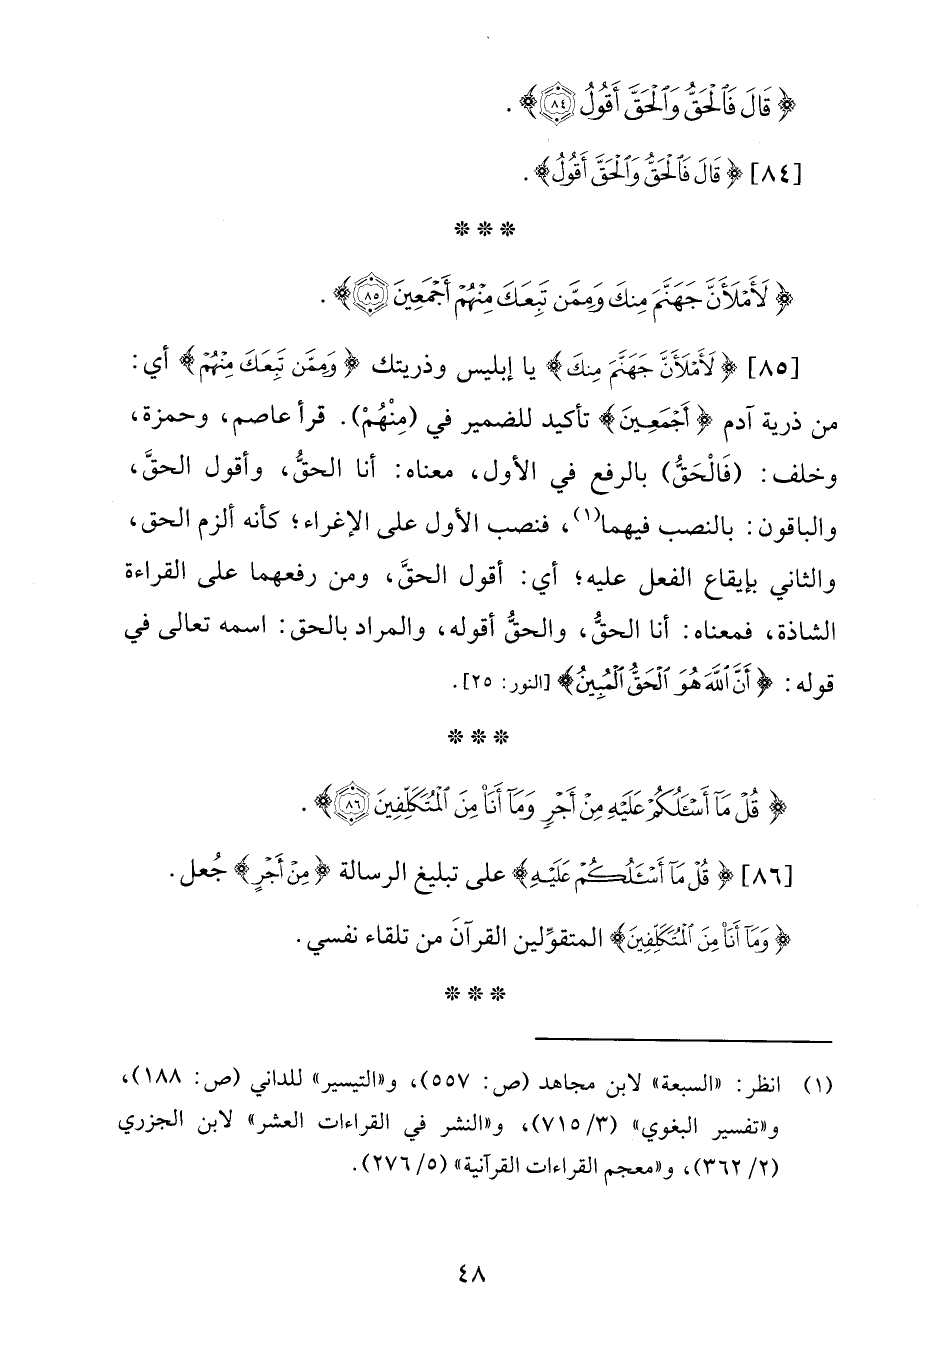 ﴿ قَالَ فَٱلْحَقُّ وَٱلْحَقَّ أَقُولُ ﴿٨٤﴾ ﴾ .
[٨٤] ﴿ قَالَ فَٱلْحَقُّ وَٱلْحَقَّ أَقُولُ ﴾ .
* * *
﴿ لَأَمْلَأَنَّ جَهَنَّمَ مِنكَ وَمِمَّن تَبِعَكَ مِنْهُمْ أَجْمَعِينَ ﴿٨٥﴾ ﴾ .
[٨٥] ﴿ لَأَمْلَأَنَّ جَهَنَّمَ مِنكَ ﴾ يا إبليس وذريتك ﴿ وَمِمَّن تَبِعَكَ مِنْهُمْ ﴾ أي:
من ذرية آدم ﴿ أَجْمَعِينَ ﴾ تأكيد للضمير في (مِنْهُمْ). قرأ عاصم، وحمزة،
وخلف: (فَالْحَقُّ) بالرفع في الأول، معناه: أنا الحقُّ، وأقول الحقَّ،
والباقون: بالنصب فيهما(١)، فنصب الأول على الإغراء؛ كأنه ألزم الحق،
والثاني بإيقاع الفعل عليه؛ أي: أقول الحقَّ، ومن رفعهما على القراءة
الشاذة، فمعناه: أنا الحقُّ، والحقُّ أقوله، والمراد بالحق: اسمه تعالى في
قوله: ﴿ أَنَّ ٱللَّهَ هُوَ ٱلْحَقُّ ٱلْمُبِينُ ﴾ [النور: ٢٥].
* * *
﴿ قُلْ مَآ أَسْـَٔلُكُمْ عَلَيْهِ مِنْ أَجْرٍ وَمَآ أَنَا۠ مِنَ ٱلْمُتَكَلِّفِينَ ﴿٨٦﴾ ﴾ .
[٨٦] ﴿ قُلْ مَآ أَسْـَٔلُكُمْ عَلَيْهِ ﴾ على تبليغ الرسالة ﴿ مِنْ أَجْرٍ ﴾ جُعل.
﴿ وَمَآ أَنَا۠ مِنَ ٱلْمُتَكَلِّفِينَ ﴾ المتقوِّلين القرآنَ من تلقاء نفسي.
* * *
(١) انظر: «السبعة» لابن مجاهد (ص: ٥٥٧)، و«التيسير» للداني (ص: ١٨٨)،
و«تفسير البغوي» (٣/ ٧١٥)، و«النشر في القراءات العشر» لابن الجزري
(٢/ ٣٦٢)، و«معجم القراءات القرآنية» (٥/ ٢٧٦).
٤٨